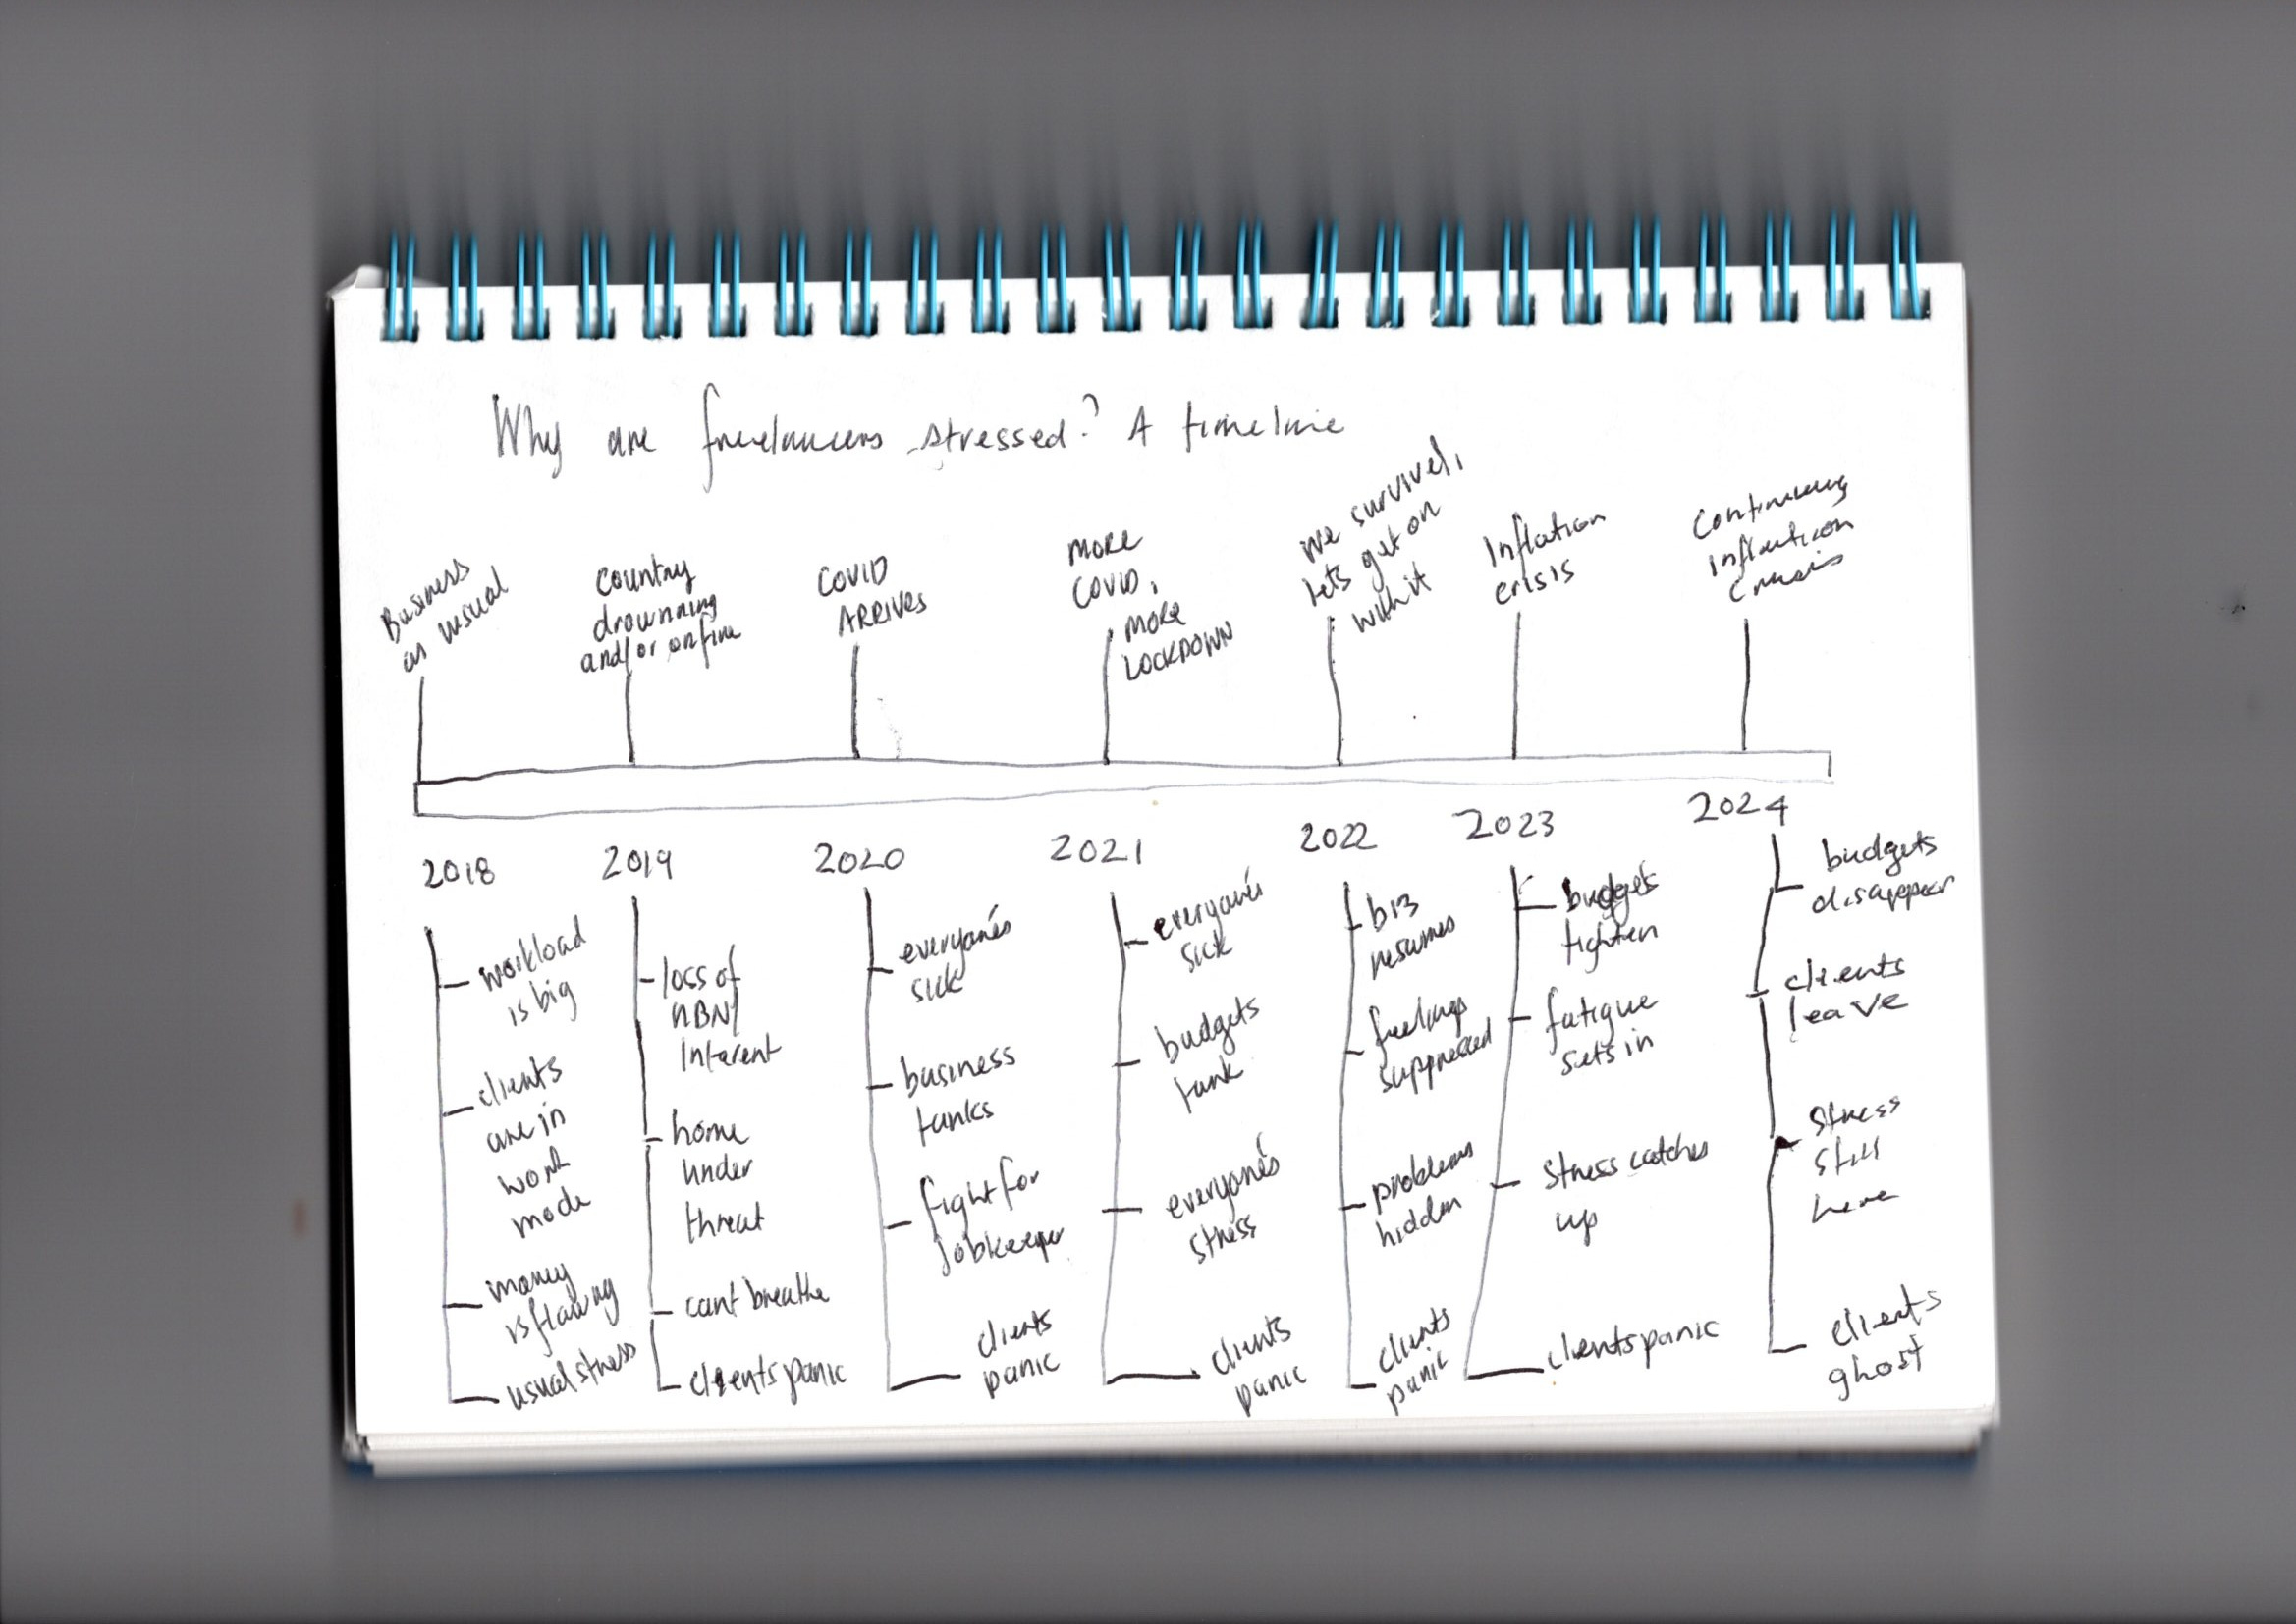 Why are freelancers stressed? A timeline
Business
as usual
Country
drowning
and/or on fire
COVID
ARRIVES
MORE
COVID,
MORE
LOCKDOWN
We survived,
lets get on
with it
Inflation
crisis
Continuing
inflation
crisis
2018
workload
is big
clients
are in
work
mode
money
is flowing
usual stress
2019
loss of
NBN/
Interent
home
under
threat
cant breathe
clients panic
2020
everyone's
sick
business
tanks
fight for
jobkeeper
clients
panic
2021
everyone's
sick
budgets
tank
everyone's
stress
clients
panic
2022
biz
resumes
feelings
suppressed
problems
hidden
clients
panic
2023
budgets
tighten
fatigue
sets in
stress catches
up
clients panic
2024
budgets
disappear
clients
leave
stress
still
here
clients
ghost